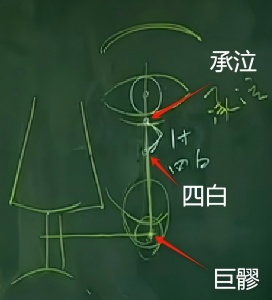 承泣
承泣
1寸
四白
四白
巨髎